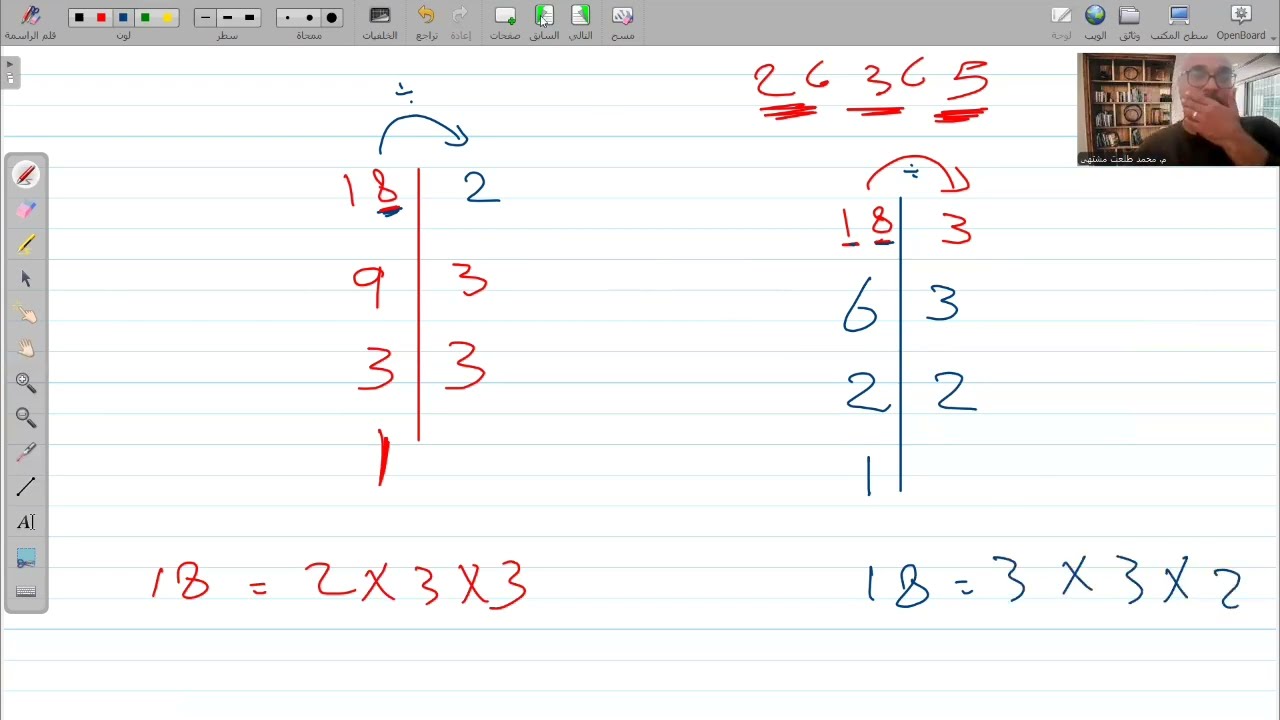 قلم الراسمة لون سطر ممحاة الخلفيات تراجع إعادة صفحات السابق التالي مسح لوحة الويب وثائق سطح المكتب OpenBoard
2 ، 3 ، 5
م. محمد طلعت مشتهى
÷
18 2
9 3
3 3
1
÷
18 3
6 3
2 2
1
18 = 2 × 3 × 3
18 = 3 × 3 × 2